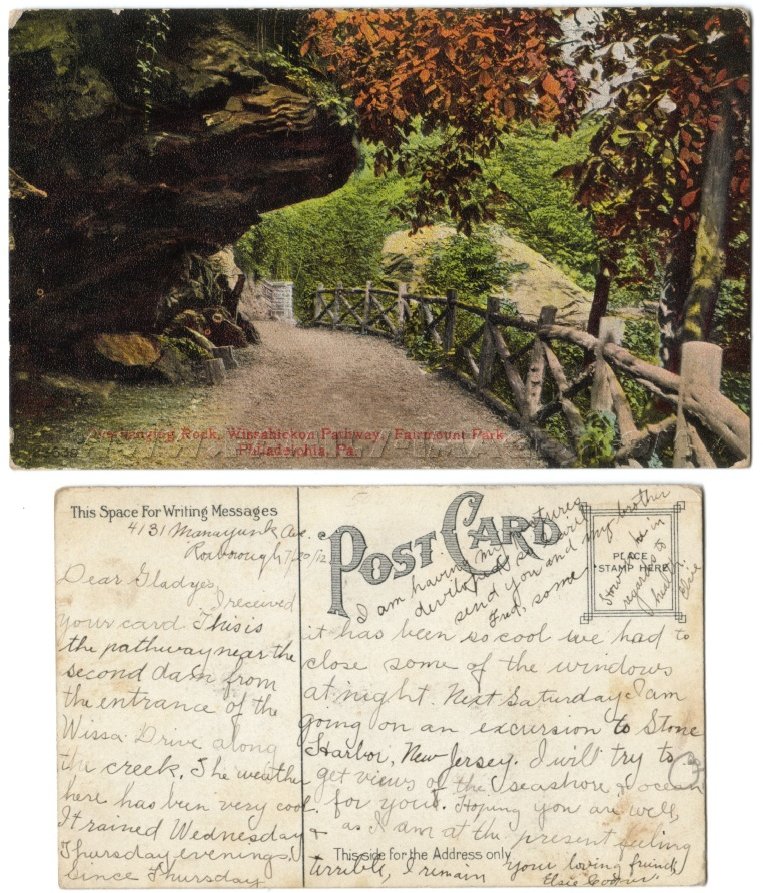 Overhanging Rock, Wissahickon Pathway, Fairmount Park,
Philadelphia, Pa.
This Space For Writing Messages
4131 Manayunk Ave.
Roxborough 7/20/12
Dear Gladyes,
I received
your card. This is
the pathway near the
second dam from
the entrance of the
Wissa. Drive along
the creek. The weather
here has been very cool.
It rained Wednesday &
Thursday evenings.
Since Thursday
POST CARD
PLACE
STAMP HERE
it has been so cool we had to
close some of the windows
at night. Next Saturday I am
going on an excursion to Stone
Harbor, New Jersey. I will try to
get views of the seashore & ocean
for you. Hoping you are well,
as I am at the present feeling
terrible, I remain
your loving friend
Elsie
This side for the Address only
I am having my pictures
developed so I will
send you and my brother
Fred, some
How I be in
regards to
health.
Elsie
3